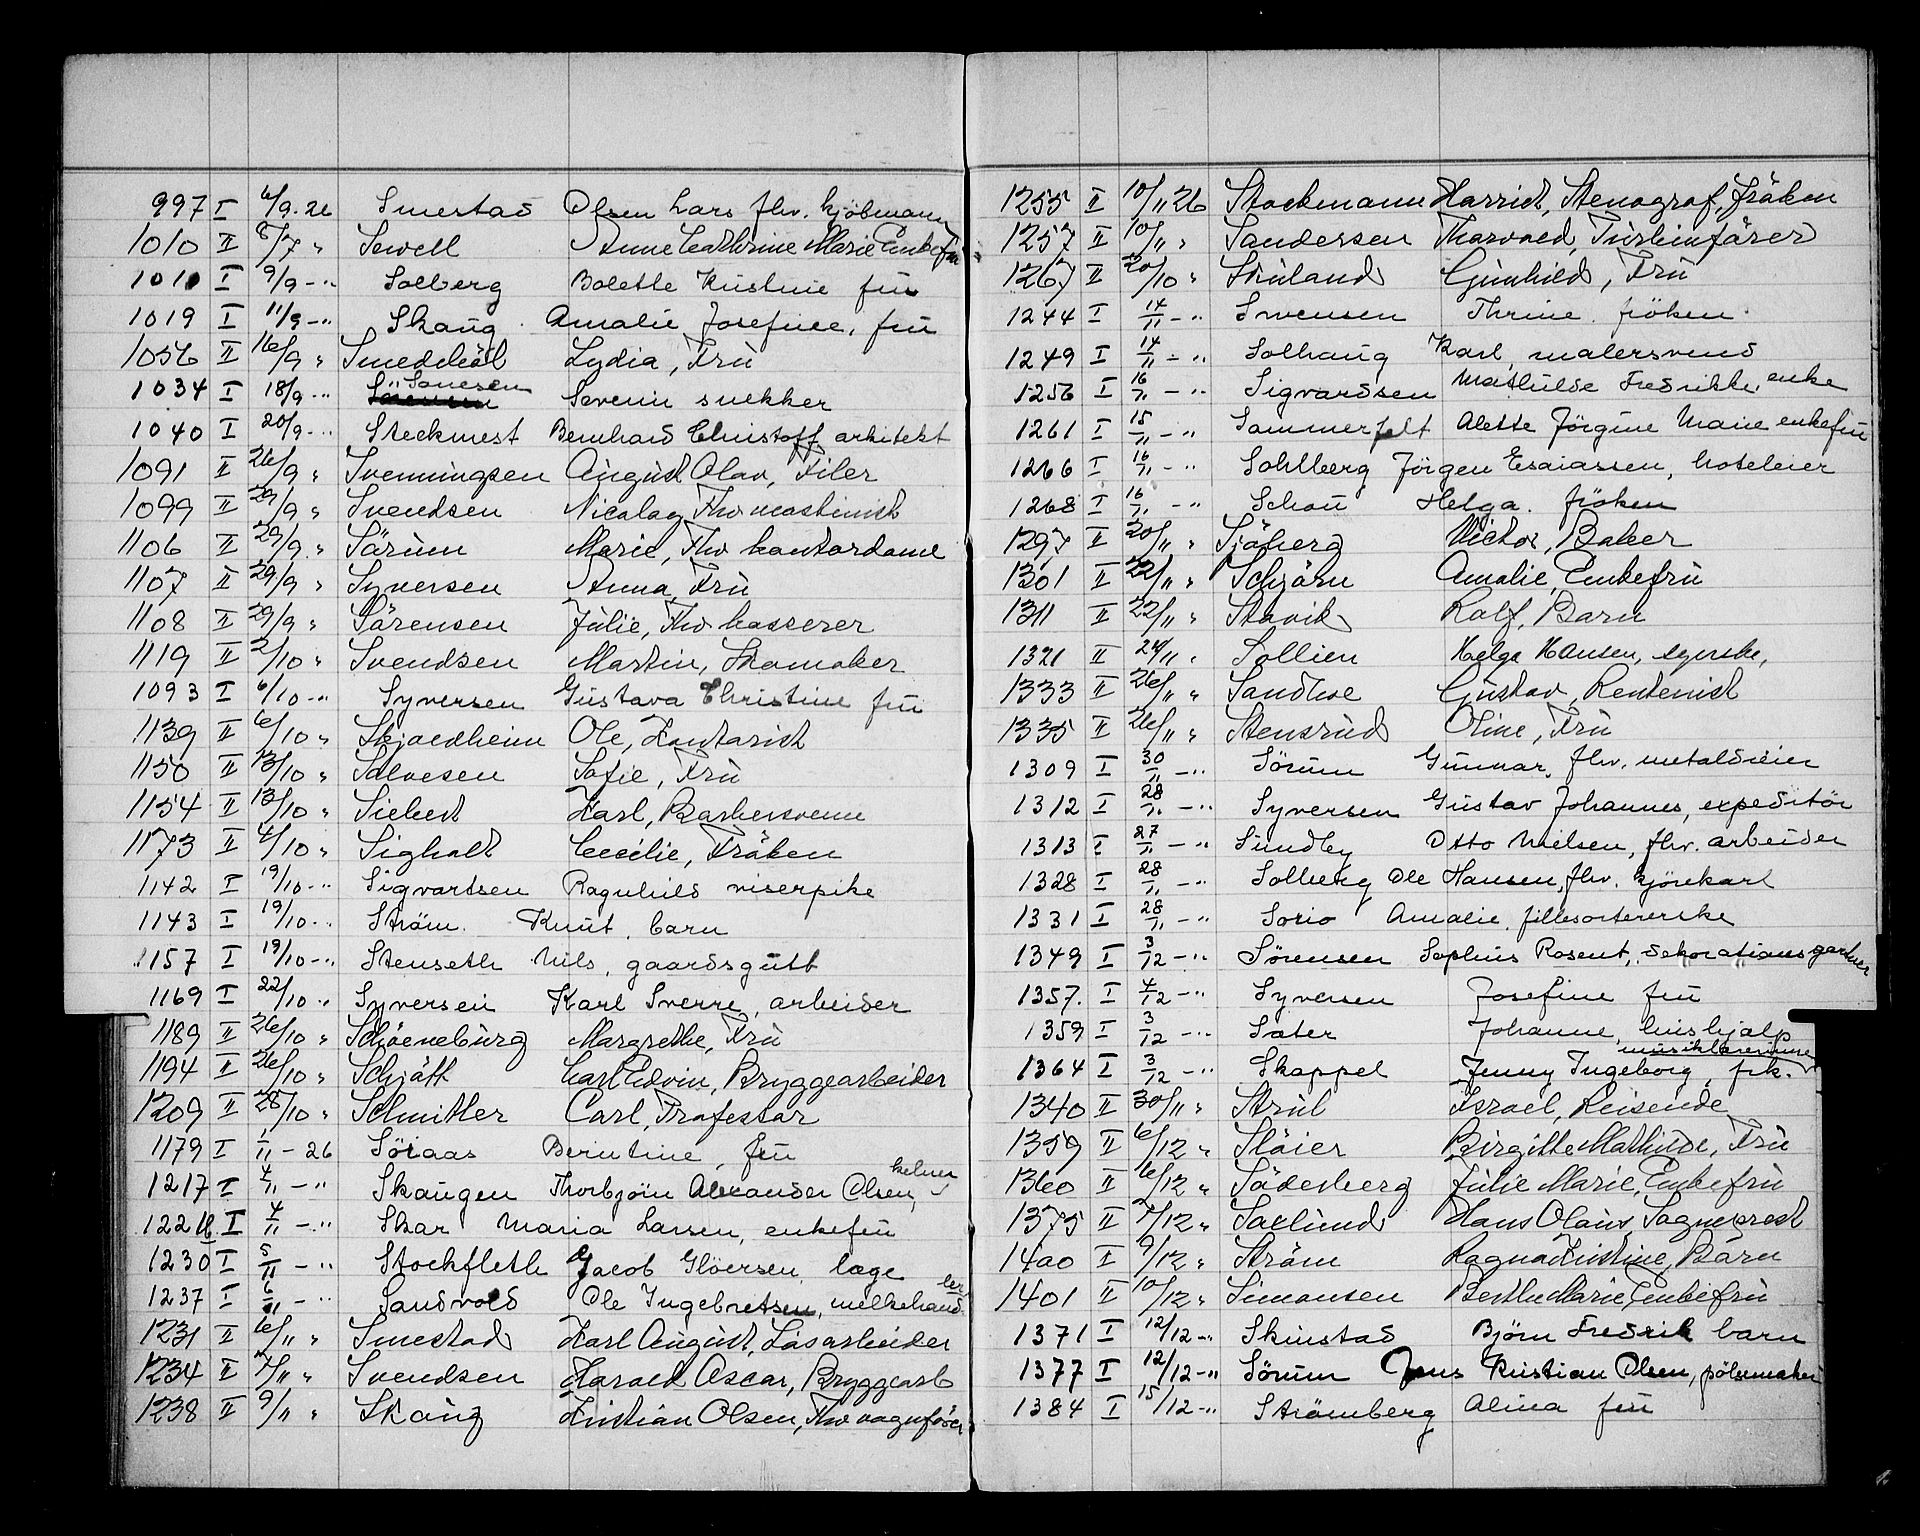 997 I 6/9.26 Smestad Olsen Lars fhv. kjöbmann
1010 II 8/7 " Sewell Anne Cathrine Marie Enkefru
1011 I 9/9 -" Solberg Bolette Kristine fru
1019 I 11/9 -" Skaug Amalie Josefine, fru
1056 II 16/9 " Lydia, Fru
1034 I 18/9 -" Severin snekker
1040 I 20/9 -" Steckmest Bernhard Christoff arkitekt
1091 II 26/9 " Svenningsen August Olav, Filer
1099 II 29/9 " Svendsen Nicolay, Fhv maskinist
1106 II 29/9 " Särum Marie, Fhv kontordame
1107 II 29/9 " Syversen Anna, Fru
1108 II 29/9 " Särensen Julie, Fhv kasserer
1119 II 2/10 " Svendsen Martin, Skomaker
1093 I 6/10 -" Syversen Gustava Christine fru
1139 II 6/10 " Skjoldheim Ole, Kontorist
1150 II 13/10 " Salvesen Sofie, Fru
1154 II 13/10 " Siebert Karl, Barbersvenn
1173 II 4/10 " Sigholt Cecilie, Fräken
1142 I 19/10 -" Sigvartsen Ragnhild viserpike
1143 I 19/10 -" Ström Knut, barn
1157 I 19/10 -" Stenseth Nils, gaardsgutt
1169 I 22/10 -" Syversen Karl Sverre, arbeider
1189 II 26/10 " Schöeneburg Margrethe, Fru
1194 I 26/10 " Schjött Carl Edvin, Bryggearbeider
1209 II 28/10 " Schnitler Carl, Professor
1179 I 1/11 - 26 Söraas Berntine, fru
1217 I 4/11 -" Skaugen Thorbjörn Alexander Olsen, kelner
1221 I 4/11 -" Skar Maria Larsen, enkefru
1230 I 5/11 -" Stockfleth Jacob Glöersen, læge
1237 I 6/11 -" Sandvold Ole Ingebretsen, melkehandler
1231 II 6/11 " Smestad Karl August, Løsarbeider
1234 II 7/11 " Svendsen Harald Oscar, Bryggearb
1238 II 9/11 " Skaug Kristian Olsen, Fhv vognförer
1255 II 10/11 26 Stockmann Harriet, Stenograf, Fräken
1257 II 10/11 " Sandersen Thorvald, Turbinfärer
1267 II 20/10 " Gunhild, Fru
1244 I 14/11 -" Svensen Thrine fröken
1249 I 14/11 -" Solhaug Karl, malersvend
1256 I 16/11 -" Sigvardsen Mathilde Fredrikke, enke
1261 I 15/11 -" Sammerfelt Alette Jörgine Marie enkefru
1266 I 16/11 -" Sohlberg Jörgen Esaiassen, hoteleier
1268 I 16/11 -" Schou Helga, fröken
1297 II 20/11 " Sjöberg Victor, Baker
1301 II 22/11 " Schjörn Amalie, Enkefru
1311 II 22/11 " Stavik Rolf, Barn
1321 II 24/11 " Sollien Helga Hansen, syerske,
1333 II 26/11 " Sandhoe Gustav, Rentenist
1335 II 26/11 " Stensrud Oline, Fru
1309 I 30/11 -" Sörum Gunnar, fhv. metaldreier
1312 I 28/11 -" Syversen Gustav Johannes, expeditör
1313 I 27/11 -" Sundby Otto Nielsen, fhv. arbeider
1328 I 28/11 -" Solberg Ole Hansen, fhv. kjörekarl
1331 I 28/11 -" Sorio Amalie, fillesortererske
1349 I 3/12 -" Sörensen Sophus Rosent, dekorationsgartner
1357. I 4/12 -" Syversen Josefine fru
1359 I 3/12 -" Sater Johanne, hushjælp
1364 I 3/12 -" Skappel Jenny Ingeborg, frk. musiklærerinne
1340 II 30/11 " Strul Israel, Reisende
1359 II 6/12 " Stöier Birgitte Mathilde, Fru
1360 II 6/12 " Söderberg Julie Marie, Enkefru
1375 II 7/12 " Saxlund Hans Olaus, Sogneprest
1400 I 9/12 " Ström Ragna Kristine, Barn
1401 II 10/12 " Simonsen Berthe Marie, Enkefru
1371 I 12/12 -" Skinstad Bjørn Fredrik barn
1377 I 12/12 -" Sörum Jens Kristian Olsen, pölsemaker
1384 I 15/12 -" Strömberg Alina fru